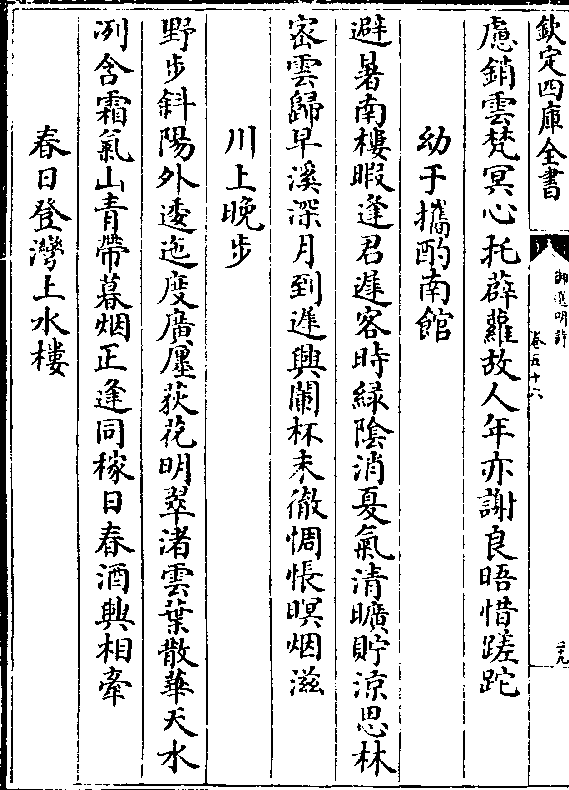 欽定四庫全書
御選明詩
卷五十六
二九
慮銷雲梵冥心托薜蘿故人年亦謝良晤惜蹉跎
幼于攜酌南館
避暑南樓暇逢君遲客時緑陰消夏氣清曠貯涼思林
宻雲歸早溪深月到遲興闌杯未徹惆悵暝烟滋
川上晚步
野步斜陽外逶迤度廣㕓荻花明翠渚雲葉散華天水
冽含霜氣山青帶暮烟正逢同稼日春酒興相牽
春日登灣上水樓